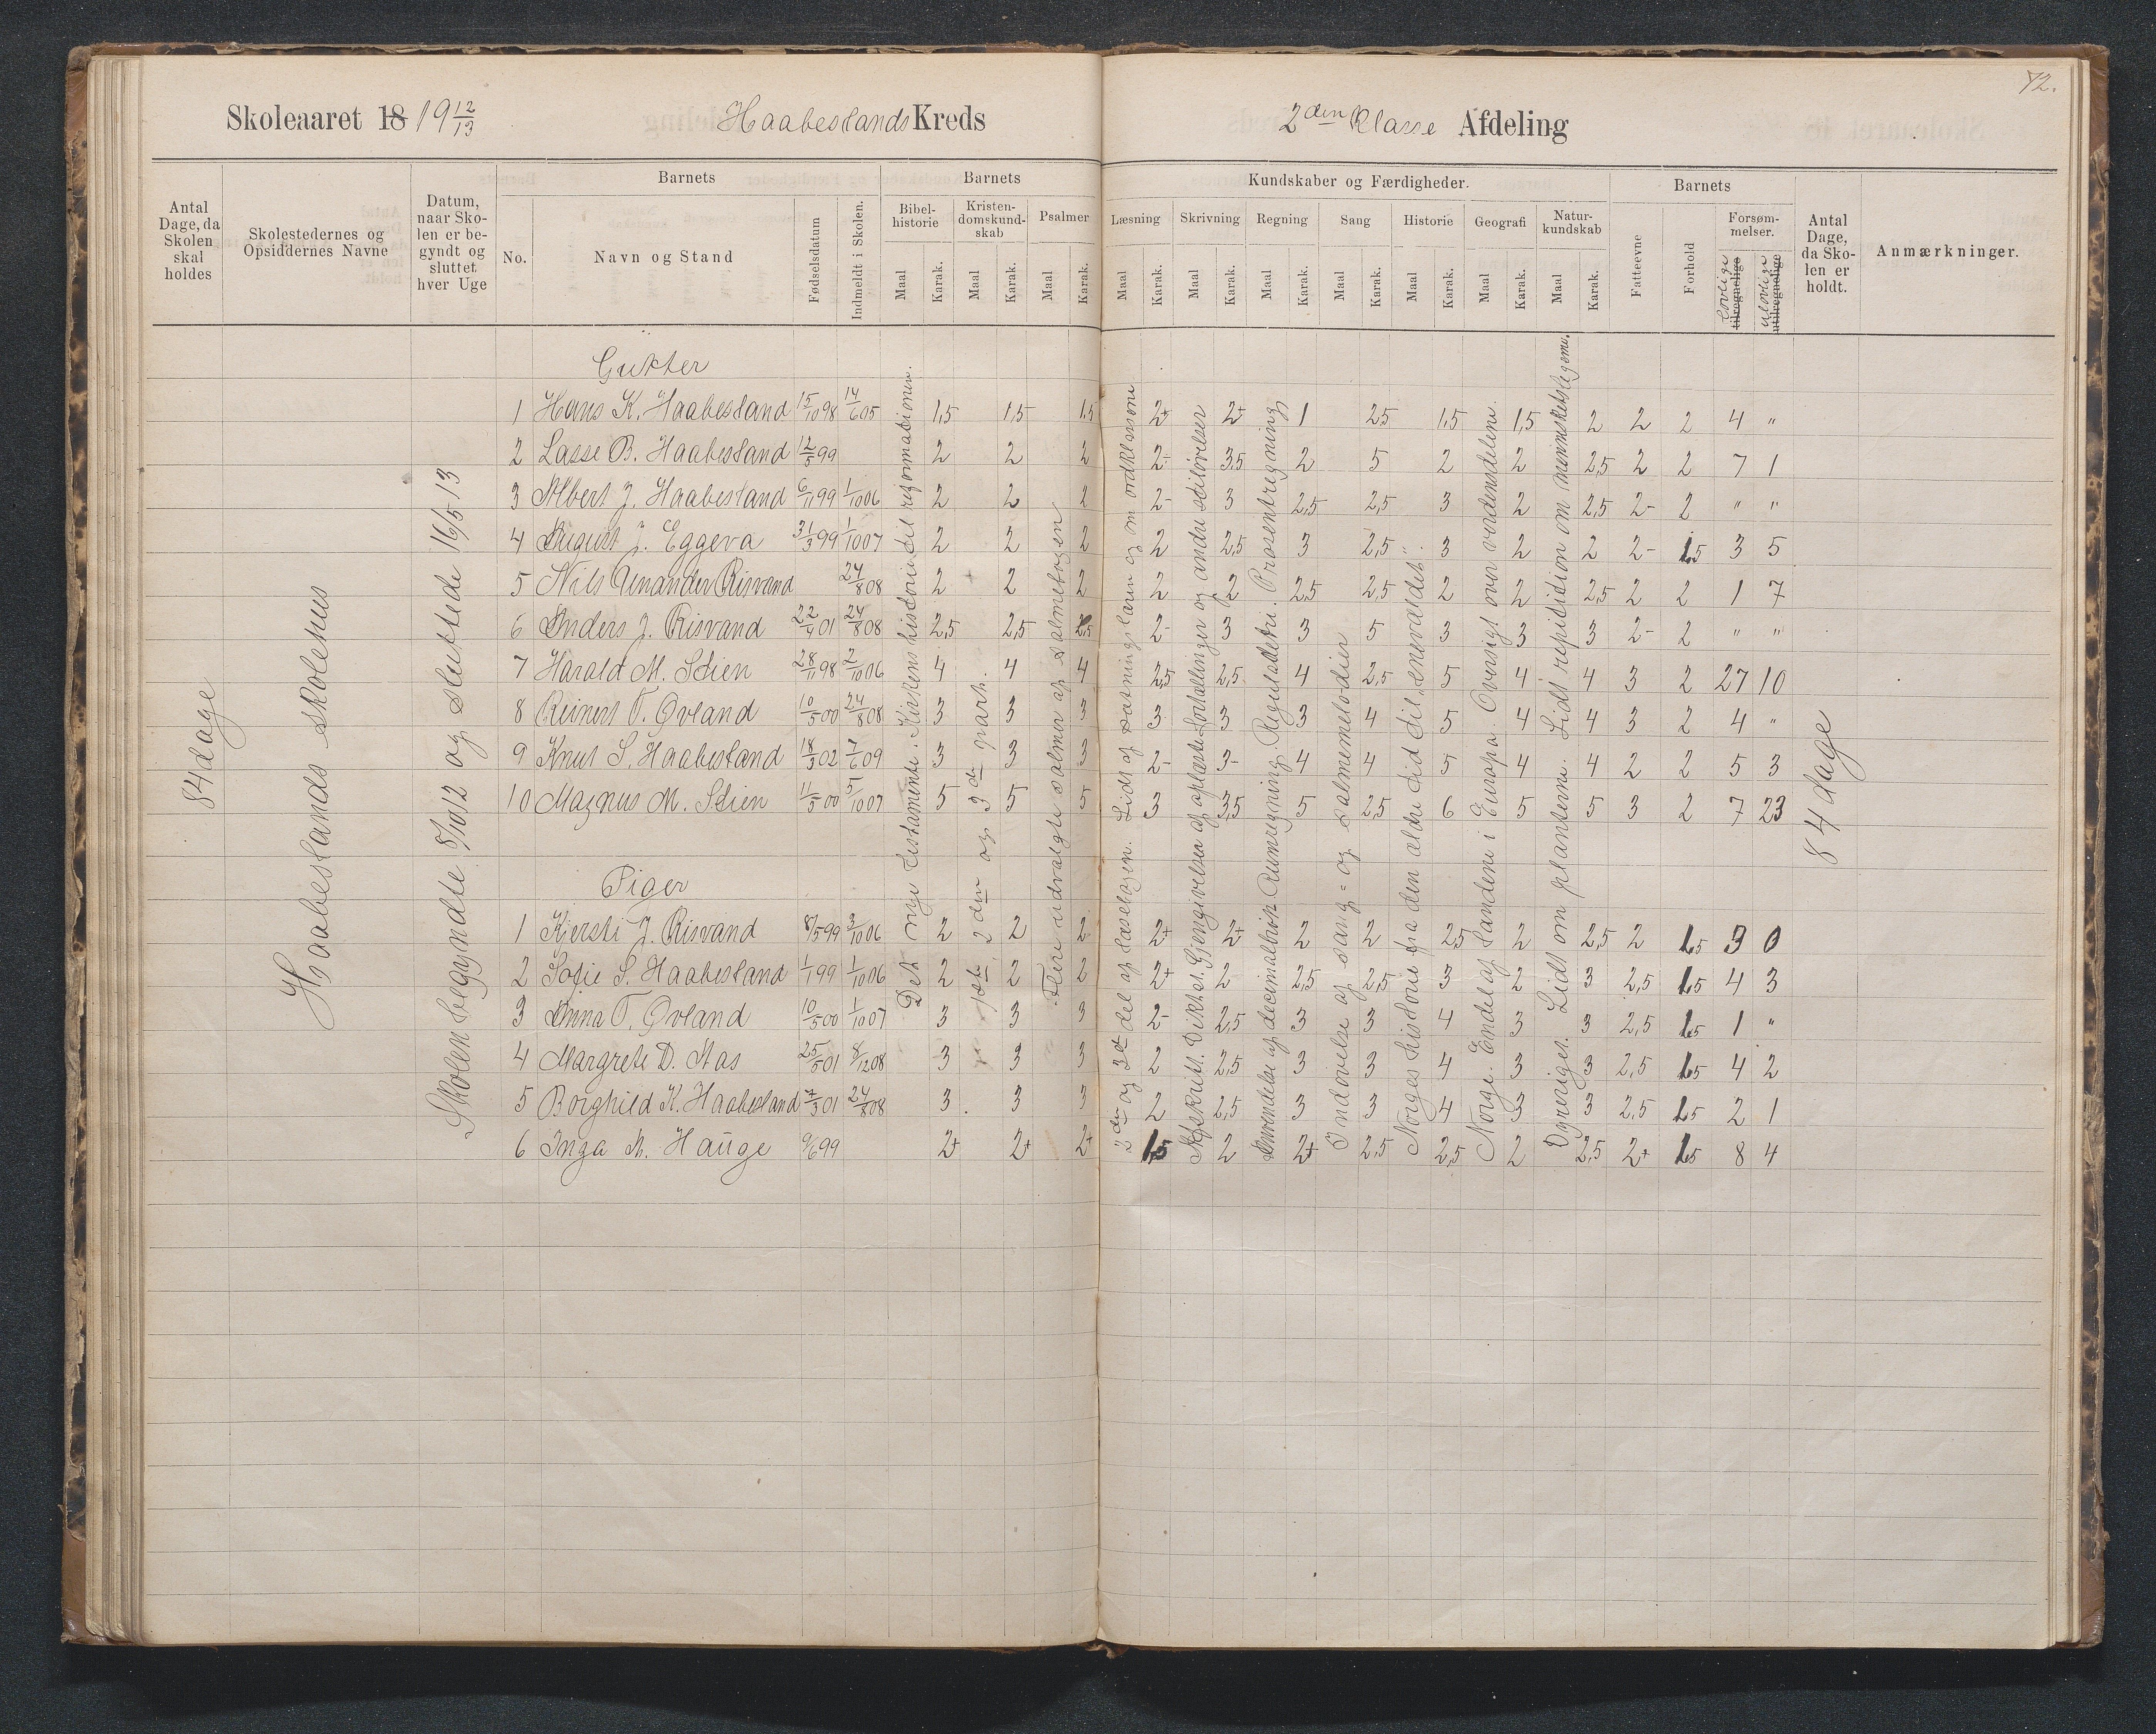 72.
Skoleaaret 18 19 12/13 Haabestands Kreds 2den Klasse Afdeling
Antal Dage, da Skolen skal holdes
Skolestedernes og Opsiddernes Navne
Datum, naar Skolen er begyndt og sluttet hver Uge
Barnets
No.
Navn og Stand
Fødselsdatum
Indmeldt i Skolen.
Barnets Kundskaber og Færdigheder.
Bibelhistorie Maal Karak.
Kristendomskundskab Maal Karak.
Psalmer Maal Karak.
Læsning Maal Karak.
Skrivning Maal Karak.
Regning Maal Karak.
Sang Maal Karak.
Historie Maal Karak.
Geografi Maal Karak.
Naturkundskab Maal Karak.
Barnets
Fatteevne
Forhold
Forsømmelser.
lovlige tilregnelige
ulovlige utilregnelige
Antal Dage, da Skolen er holdt.
Anmærkninger.
84 dage
Haabestands skolehus
Skolen begyndte 8/10 12 og sluttede 16/5 13
Det nye testamente. Kirkens historie til reformationen.
1ste 2den og 3die part.
Flere udvalgte salmer af salmebogen
2den og 3die del af læsebogen. Lidt af sætningslæren og om ordklasserne
Afskrift. Diktat. Gjengivelse af oplæste fortællinger og andre stiløvelser
Anvendelse af decimalbrøk. Rumregning. Reguladetri. Prosentregning
Indøvelse af sang- og salmemelodier
Norges historie fra den ældre tid til "enevældet".
Norge. Endel af landene i Europa. Oversigt over verdensdelene.
Dyreriget. Lidt om planterne. Lidt repitition om menneskelegeme.
Gutter
1 Hans K. Haabestand 15/10 98 14/6 05 1,5 1,5 1,5 2+ 2+ 1 2,5 1,5 1,5 2 2 2 4 "
2 Lasse B. Haabestand 12/5 99 2 2 2 2- 3,5 2 5 2 2 2,5 2 2 7 1
3 Albert J. Haabestand 6/11 99 1/10 06 2 2 2 2- 3 2,5 2,5 3 2 2,5 2- 2 " "
4 August J. Eggeva 31/3 99 1/10 07 2 2 2 2 2,5 3 2,5 3 2 2 2- 1,5 3 5
5 Nils Unander Risvand 24/8 08 2 2 2 2 2 2,5 2,5 2 2 2,5 2 2 1 7
6 Anders J. Risvand 22/4 01 24/8 08 2,5 2,5 2,5 2- 3 3 5 3 3 3 2- 2 " "
7 Harald M. Stien 28/11 98 2/10 06 4 4 4 2,5 2,5 4 2,5 5 4 4 3 2 27 10
8 Reinert T. Øvland 10/5 00 24/8 08 3 3 3 3 3 3 4 5 4 4 3 2 4 "
9 Knut S. Haabestand 18/3 02 7/6 09 3 3 3 2- 3- 4 4 5 4 4 2 2 5 3
10 Magnus M. Stien 11/5 00 5/10 07 5 5 5 3 3,5 5 2,5 6 5 5 3 2 7 23
84 dage
Piger
1 Kjersti J. Risvand 8/5 99 3/10 06 2 2 2 2+ 2+ 2 2 2,5 2 2,5 2 1,5 3 0
2 Sofie S. Haabestand 1/1 99 1/10 06 2 2 2 2+ 2 2,5 2,5 3 2 3 2,5 1,5 4 3
3 Anna T. Øvland 10/5 00 1/10 07 3 3 3 2- 2,5 3 3 4 3 3 2,5 1,5 1 "
4 Margrete D. Aas 25/5 01 8/12 08 3 3 3 2 2,5 3 3 4 3 3 2,5 1,5 4 2
5 Borghild K. Haabestand 7/3 01 24/8 08 3 3 3 2 2,5 3 3 4 3 3 2,5 1,5 2 1
6 Inga M. Hauge 9/6 99 2+ 2+ 2+ 1,5 2 2+ 2,5 2,5 2 2,5 2+ 1,5 8 4